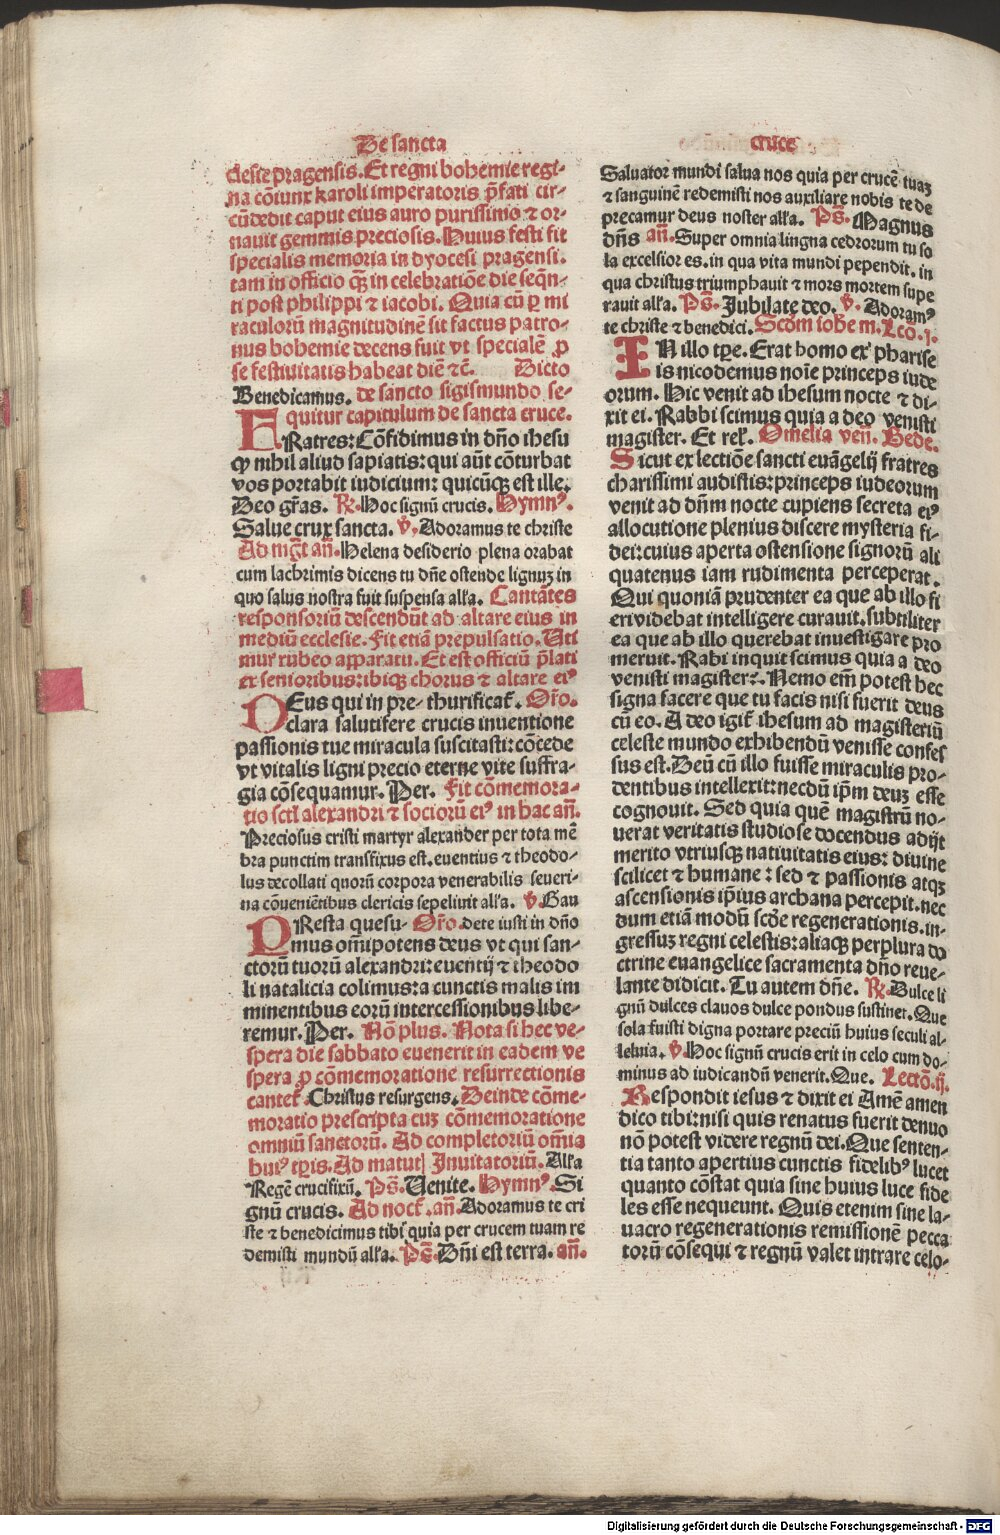 De sancta
cruce
clesie pragensis. Et regni bohemie regi-
na cōiunx karoli imperatoris p̄fati cir-
cūdedit caput eius auro purissimo ⁊ or-
nauit gemmis preciosis. Huius festi fit
specialis memoria in dyocesi pragensi.
tam in officio qȝ in celebratiōe die seqn̄-
ti post philippi ⁊ iacobi. Quia cū ꝑ mi
raculorū magnitudinē sit factus patro-
nus bohemie decens fuit vt specialē ꝓ
se festiuitatis habeat diē ⁊c̄. Dicto
Benedicamus. de sancto sigismundo se-
quitur capitulum de sancta cruce.
FRatres: Cōfidimus in dn̄o ihesu
ꝙ nihil aliud sapiatis: qui aūt cōturbat
vos portabit iudicium: quicūqȝ est ille.
Deo gr̄as. R̷. Hoc signū crucis. Hymnꝰ.
Salue crux sancta. v̷. Adoramus te christe
Ad mḡt an̄. Helena desiderio plena orabat
cum lachrimis dicens tu dn̄e ostende lignuȝ in
quo salus nostra fuit suspensa alľa. Cantātes
responsoriū descendūt ad altare eius in
mediū ecclesie. Fit etiā prepulsatio. Uti
mur rubeo apparatu. Et est officiū p̄lati
ex senioribus: ibiqȝ chorus ⁊ altare eiꝰ
DEus qui in pre- thurificat̄. Or̄o.
clara salutifere crucis inuentione
passionis tue miracula suscitasti: cōcede
vt vitalis ligni precio eterne vite suffra-
gia cōsequamur. Per. Fit cōmemora-
tio sctī alexandri ⁊ sociorū eiꝰ in hac an̄.
Preciosus cristi martyr alexander per tota mē
bra punctim transfixus est. euentius ⁊ theodo-
lus decollati quorū corpora venerabilis seueri-
na cōueniētibus clericis sepeliuit alľa. v̷. Gau
PResta quesu- Or̄o. dete iusti in dn̄o
mus om̄ipotens deus vt qui san-
ctorū tuorū alexandri: euentij ⁊ theodo
li natalicia colimus: a cunctis malis im
minentibus eorū intercessionibus libe-
remur. Per. Nō plus. Nota si hec ve-
spera die sabbato euenerit in eadem ve
spera ꝓ cōmemoratione resurrectionis
cantet̄ Christus resurgens. Deinde cōme-
moratio prescripta cuȝ cōmemoratione
omniū sanctorū. Ad completoriū om̄ia
huiꝰ tp̄is. Ad matut̄ Inuitatoriū. Alľa
Regē crucifixū. Ps̄. Uenite. Hymnꝰ. Si
gnū crucis. Ad noct̄. an̄. Adoramus te cri
ste ⁊ benedicimus tibi quia per crucem tuam re
demisti mundū alľa. Ps̄. Dn̄i est terra. an̄.
Saluator mundi salua nos quia per crucē tuaȝ
⁊ sanguinē redemisti nos auxiliare nobis te de
precamur deus noster alľa. Ps̄. Magnus
dn̄s an̄. Super omnia lingna cedrorum tu so
la excelsior es. in qua vita mundi pependit. in
qua christus triumphauit ⁊ mors mortem supe
rauit alľa. Ps̄. Jubilate deo. v̷. Adoramꝰ
te christe ⁊ benedici. Scd̄m ioh̄em. Lc̄o. j.
IN illo tp̄e. Erat homo ex pharise
is nicodemus noīe princeps iude
orum. Hic venit ad ihesum nocte ⁊ di-
xit ei. Rabbi scimus quia a deo venisti
magister. Et rel̄. Omelia ven̄. Bede.
Sicut ex lectiōe sancti euāgelij fratres
charissimi audistis: princeps iudeorum
venit ad dn̄m nocte cupiens secreta eiꝰ
allocutione plenius discere mysteria fi-
dei: cuius aperta ostensione signorū ali
quatenus iam rudimenta perceperat.
Qui quoniā prudenter ea que ab illo fi
eri videbat intelligere curauit. subtiliter
ea que ab illo querebat inuestigare pro
meruit. Rabi inquit scimus quia a deo
venisti magister ⁊. Nemo em̄ potest hec
signa facere que tu facis nisi fuerit deus
cū eo. A deo igit̄ ihesum ad magisteriū
celeste mundo exhibendū venisse confes
sus est. Deū cū illo fuisse miraculis pro-
dentibus intellexit: necdū ip̄m deuȝ esse
cognouit. Sed quia quē magistrū no-
uerat veritatis studiose docendus adijt
merito vtriusqȝ natiuitatis eius: diuine
scilicet ⁊ humane: sed ⁊ passionis atqȝ
ascensionis ip̄ius archana percepit. nec
dum etiā modū scd̄e regenerationis. in-
gressuȝ regni celestis: aliaqȝ perplura do
ctrine euangelice sacramenta dn̄o reue-
lante didicit. Tu autem dn̄e. R̷. Dulce li
gnū dulces clauos dulce pondus sustinet. Que
sola fuisti digna portare preciū huius seculi al-
leluia. v̷. Hoc signū crucis erit in celo cum do-
minus ad iudicandū venerit. Que. Lectō. ij.
Respondit iesus ⁊ dixit ei Amē amen
dico tibi: nisi quis renatus fuerit denuo
nō potest videre regnū dei. Que senten-
tia tanto apertius cunctis fidelibꝰ lucet
quanto cōstat quia sine huius luce fide
les esse nequeunt. Quis etenim sine la-
uacro regenerationis remissionē pecca
torū cōsequi ⁊ regnū valet intrare celo-
Digitalisierung gefördert durch die Deutsche Forschungsgemeinschaft - DFG